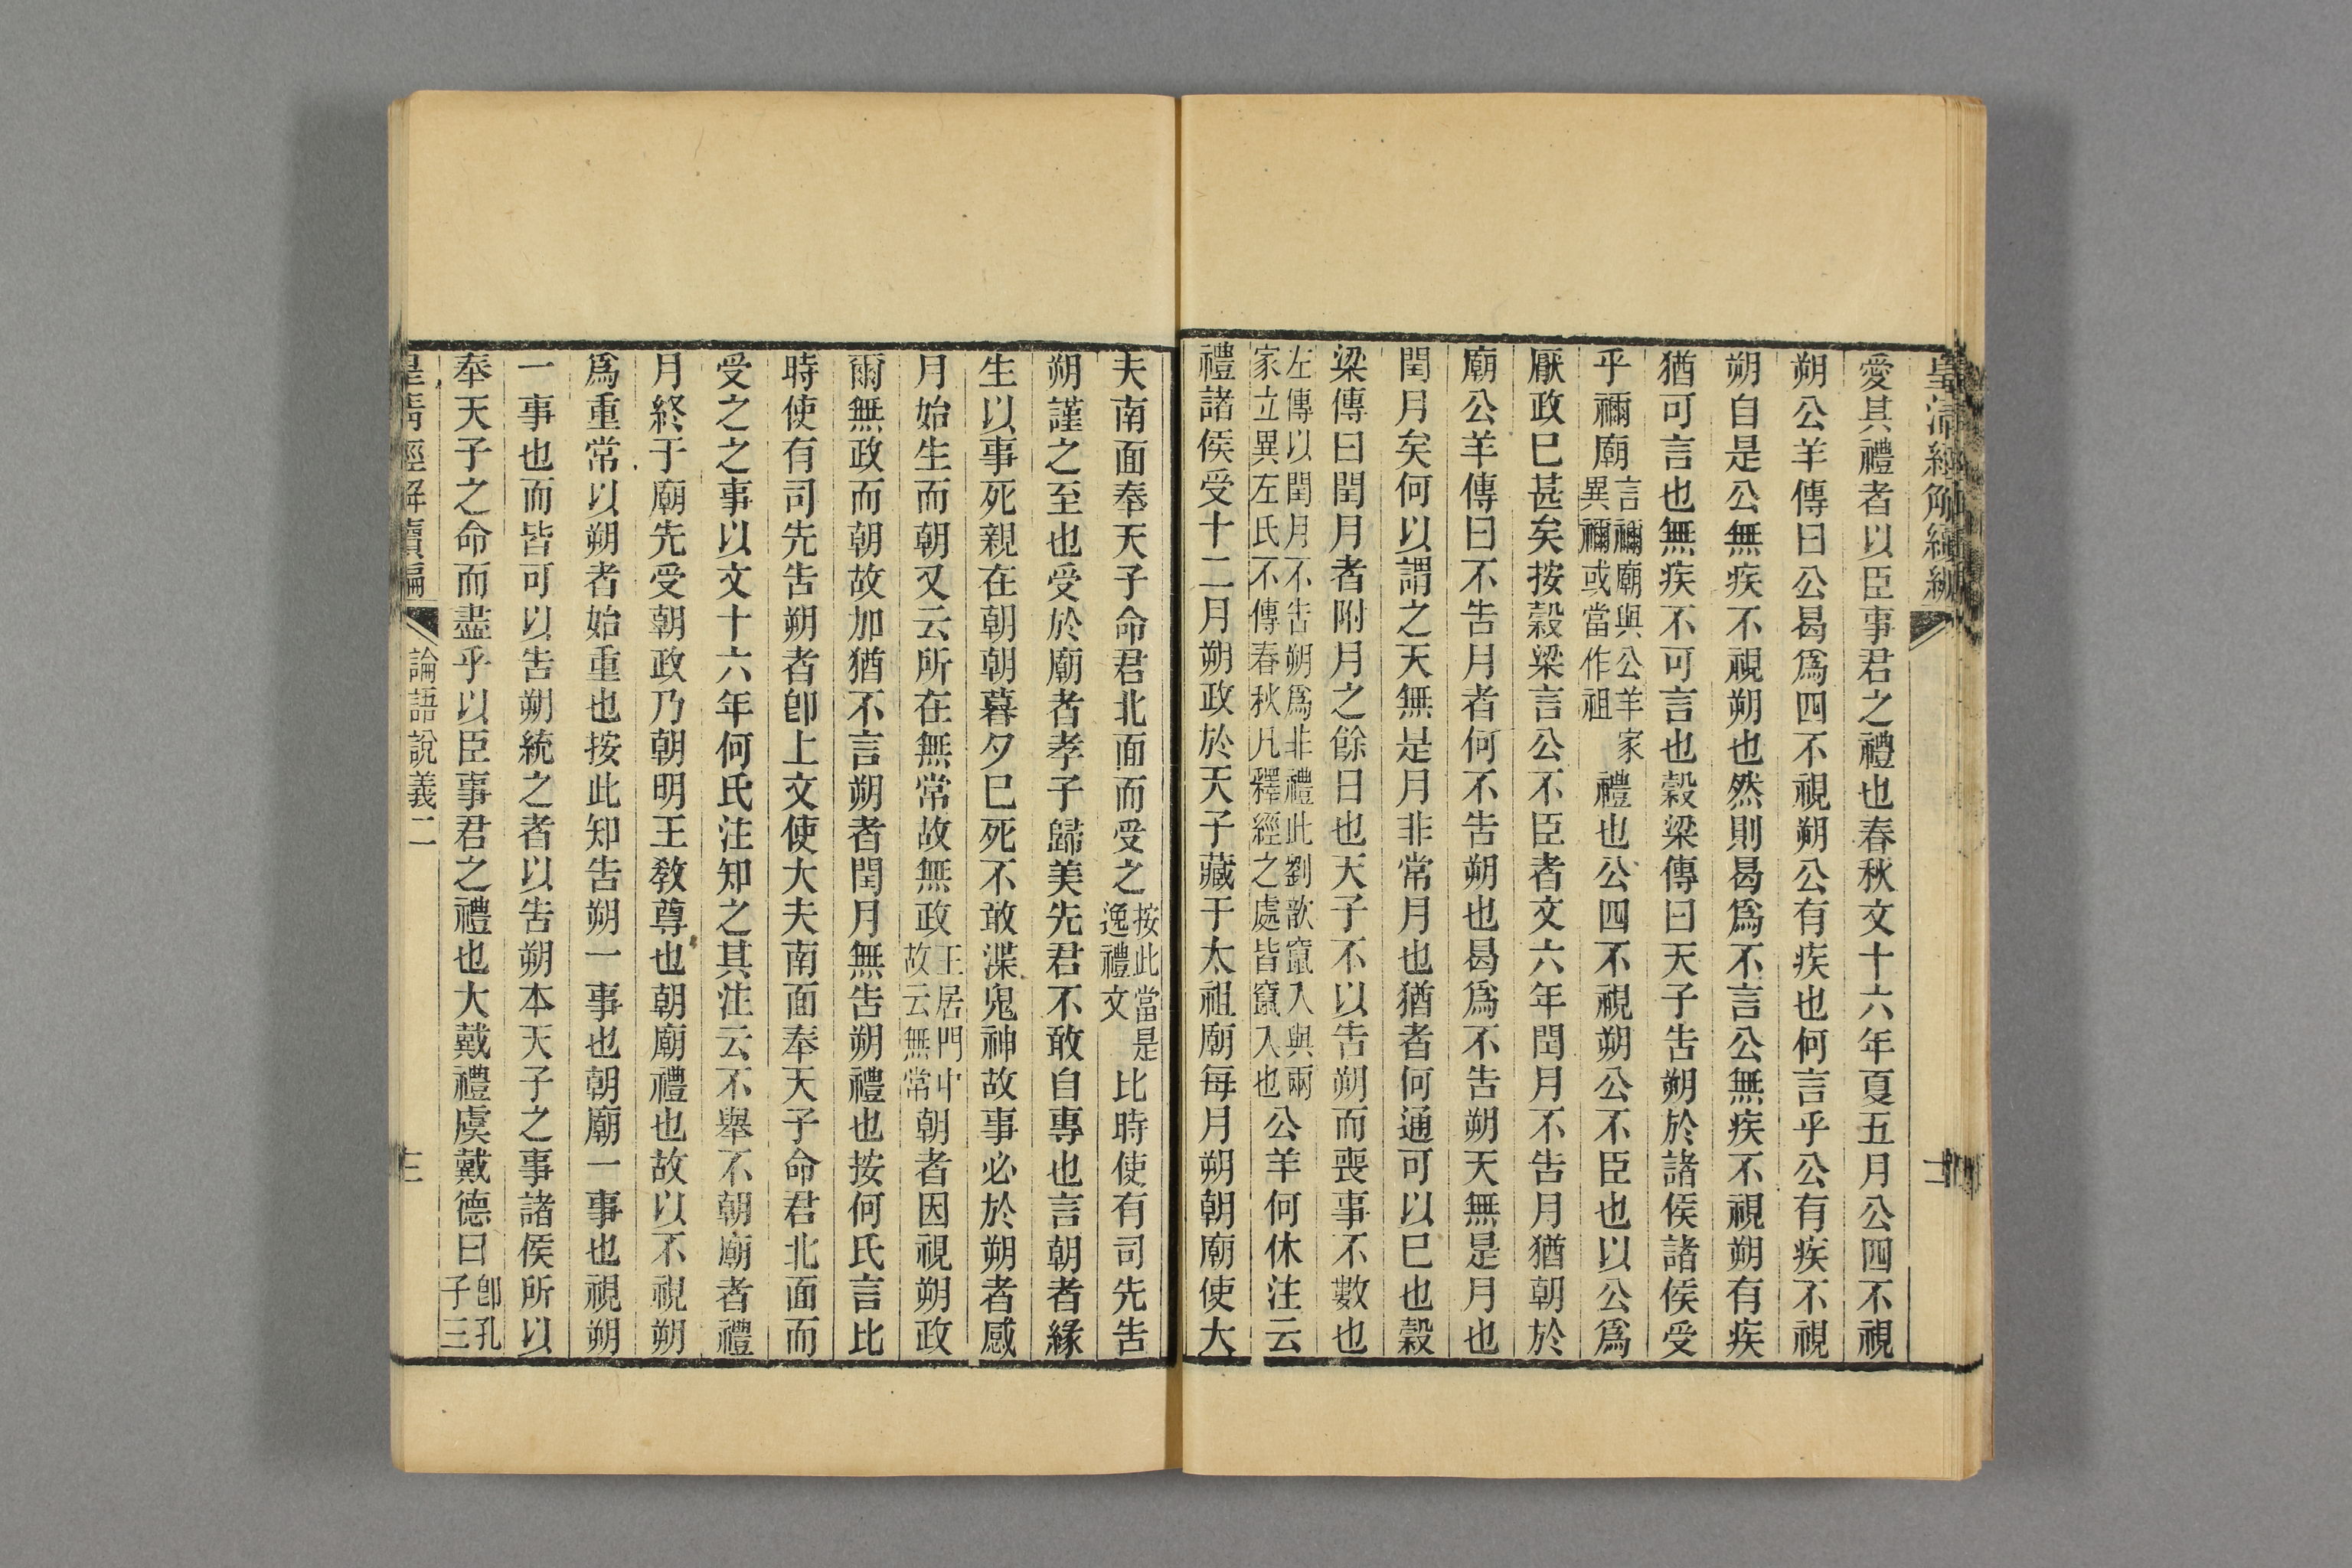 皇清經解續編
愛其禮者以臣事君之禮也春秋文十六年夏五月公四不視
朔公羊傳曰公曷爲四不視朔公有疾也何言乎公有疾不視
朔自是公無疾不視朔也然則曷爲不言公無疾不視朔有疾
猶可言也無疾不可言也穀梁傳曰天子告朔於諸侯諸侯受
乎禰廟言禰廟與公羊家異禰或當作祖禮也公四不視朔公不臣也以公爲
厭政巳甚矣按穀梁言公不臣者文六年閏月不告月猶朝於
廟公羊傳曰不告月者何不告朔也曷爲不告朔天無是月也
閏月矣何以謂之天無是月非常月也猶者何通可以巳也穀
梁傳曰閏月者附月之餘日也天子不以告朔而喪事不數也
左傳以閏月不告朔爲非禮此劉歆竄入與兩家立異左氏不傳春秋凡釋經之處皆竄入也公羊何休注云
禮諸侯受十二月朔政於天子藏于太祖廟每月朔朝廟使大
夫南面奉天子命君北面而受之按此當是逸禮文比時使有司先告
朔謹之至也受於廟者孝子歸美先君不敢自專也言朝者緣
生以事死親在朝朝暮夕巳死不敢渫鬼神故事必於朔者感
月始生而朝又云所在無常故無政王居門中故云無常朝者因視朔政
爾無政而朝故加猶不言朔者閏月無告朔禮也按何氏言比
時使有司先告朔者卽上文使大夫南面奉天子命君北面而
受之之事以文十六年何氏注知之其注云不舉不朝廟者禮
月終于廟先受朝政乃朝明王教尊也朝廟禮也故以不視朔
爲重常以朔者始重也按此知告朔一事也朝廟一事也視朔
一事也而皆可以告朔統之者以告朔本天子之事諸侯所以
奉天子之命而盡乎以臣事君之禮也大戴禮虞戴德曰卽孔子三
皇清經解續編
論語說義二
三